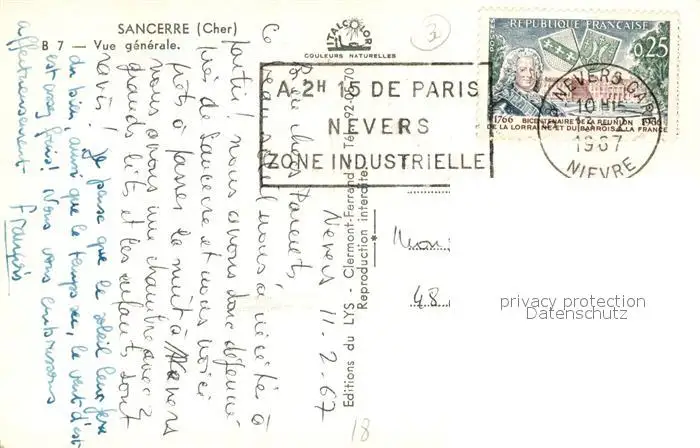 SANCERRE (Cher)
B 7 — Vue générale.
ITALCOLOR
COULEURS NATURELLES
3
POSTES
RÉPUBLIQUE FRANÇAISE
0,25
1766 BICENTENAIRE DE LA RÉUNION 1966
DE LA LORRAINE ET DU BARROIS A LA FRANCE
A 2H 15 DE PARIS
NEVERS
ZONE INDUSTRIELLE
NEVERS GARE
10 H15
1967
NIEVRE
Editions du LYS - Clermont-Ferrand - Tél. 92-05-70
Reproduction interdite
Nevers 11-2-67
Bien chers Parents,
Ce beau soleil nous a incités à
partir! nous avons donc déjeuné
près de Sancerre et nous voici
prêts à passer la nuit à Nevers
nous avons une chambre avec 2
grands lits et les enfants sont
ravis! Je pense que le soleil leur fera
du bien, ainsi que le temps, le vent d'est
est frais! Nous vous embrassons
affectueusement
François
48
18
privacy protection
Datenschutz